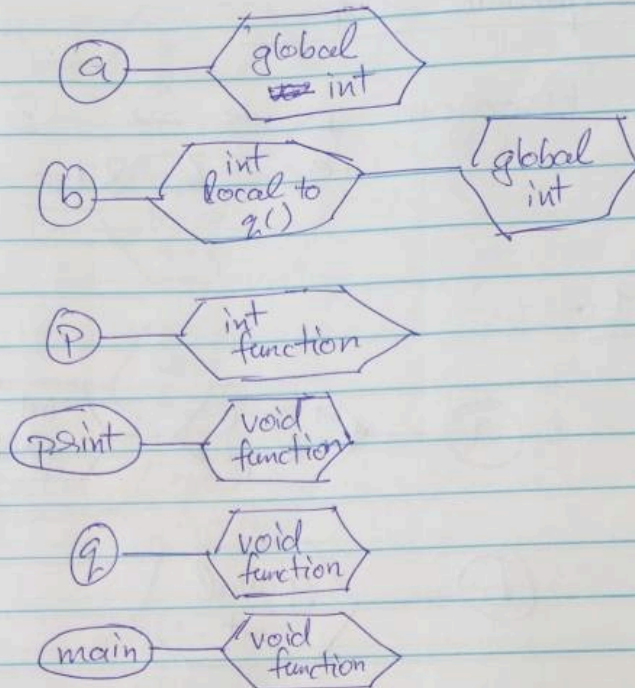 a global
int
b int
local to
q()
global
int
p int
function
print void
function
q void
function
main void
function